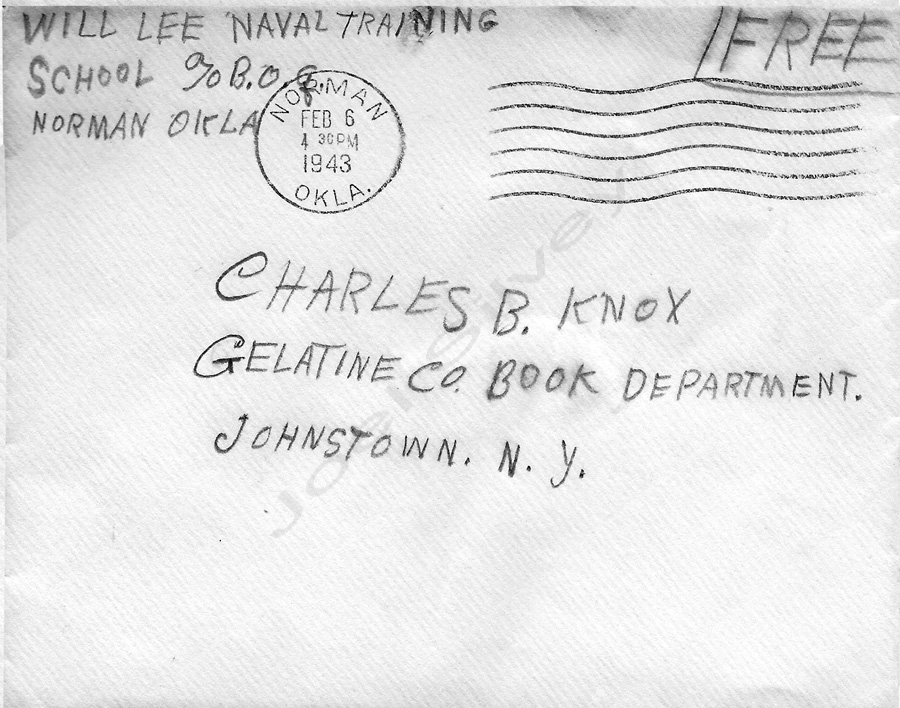 WILL LEE NAVAL TRAINING
SCHOOL c/o B.O.Q.
NORMAN OKLA
FREE
NORMAN
FEB 6
4 30PM
1943
OKLA.
CHARLES B. KNOX
GELATINE CO. BOOK DEPARTMENT.
JOHNSTOWN. N. Y.